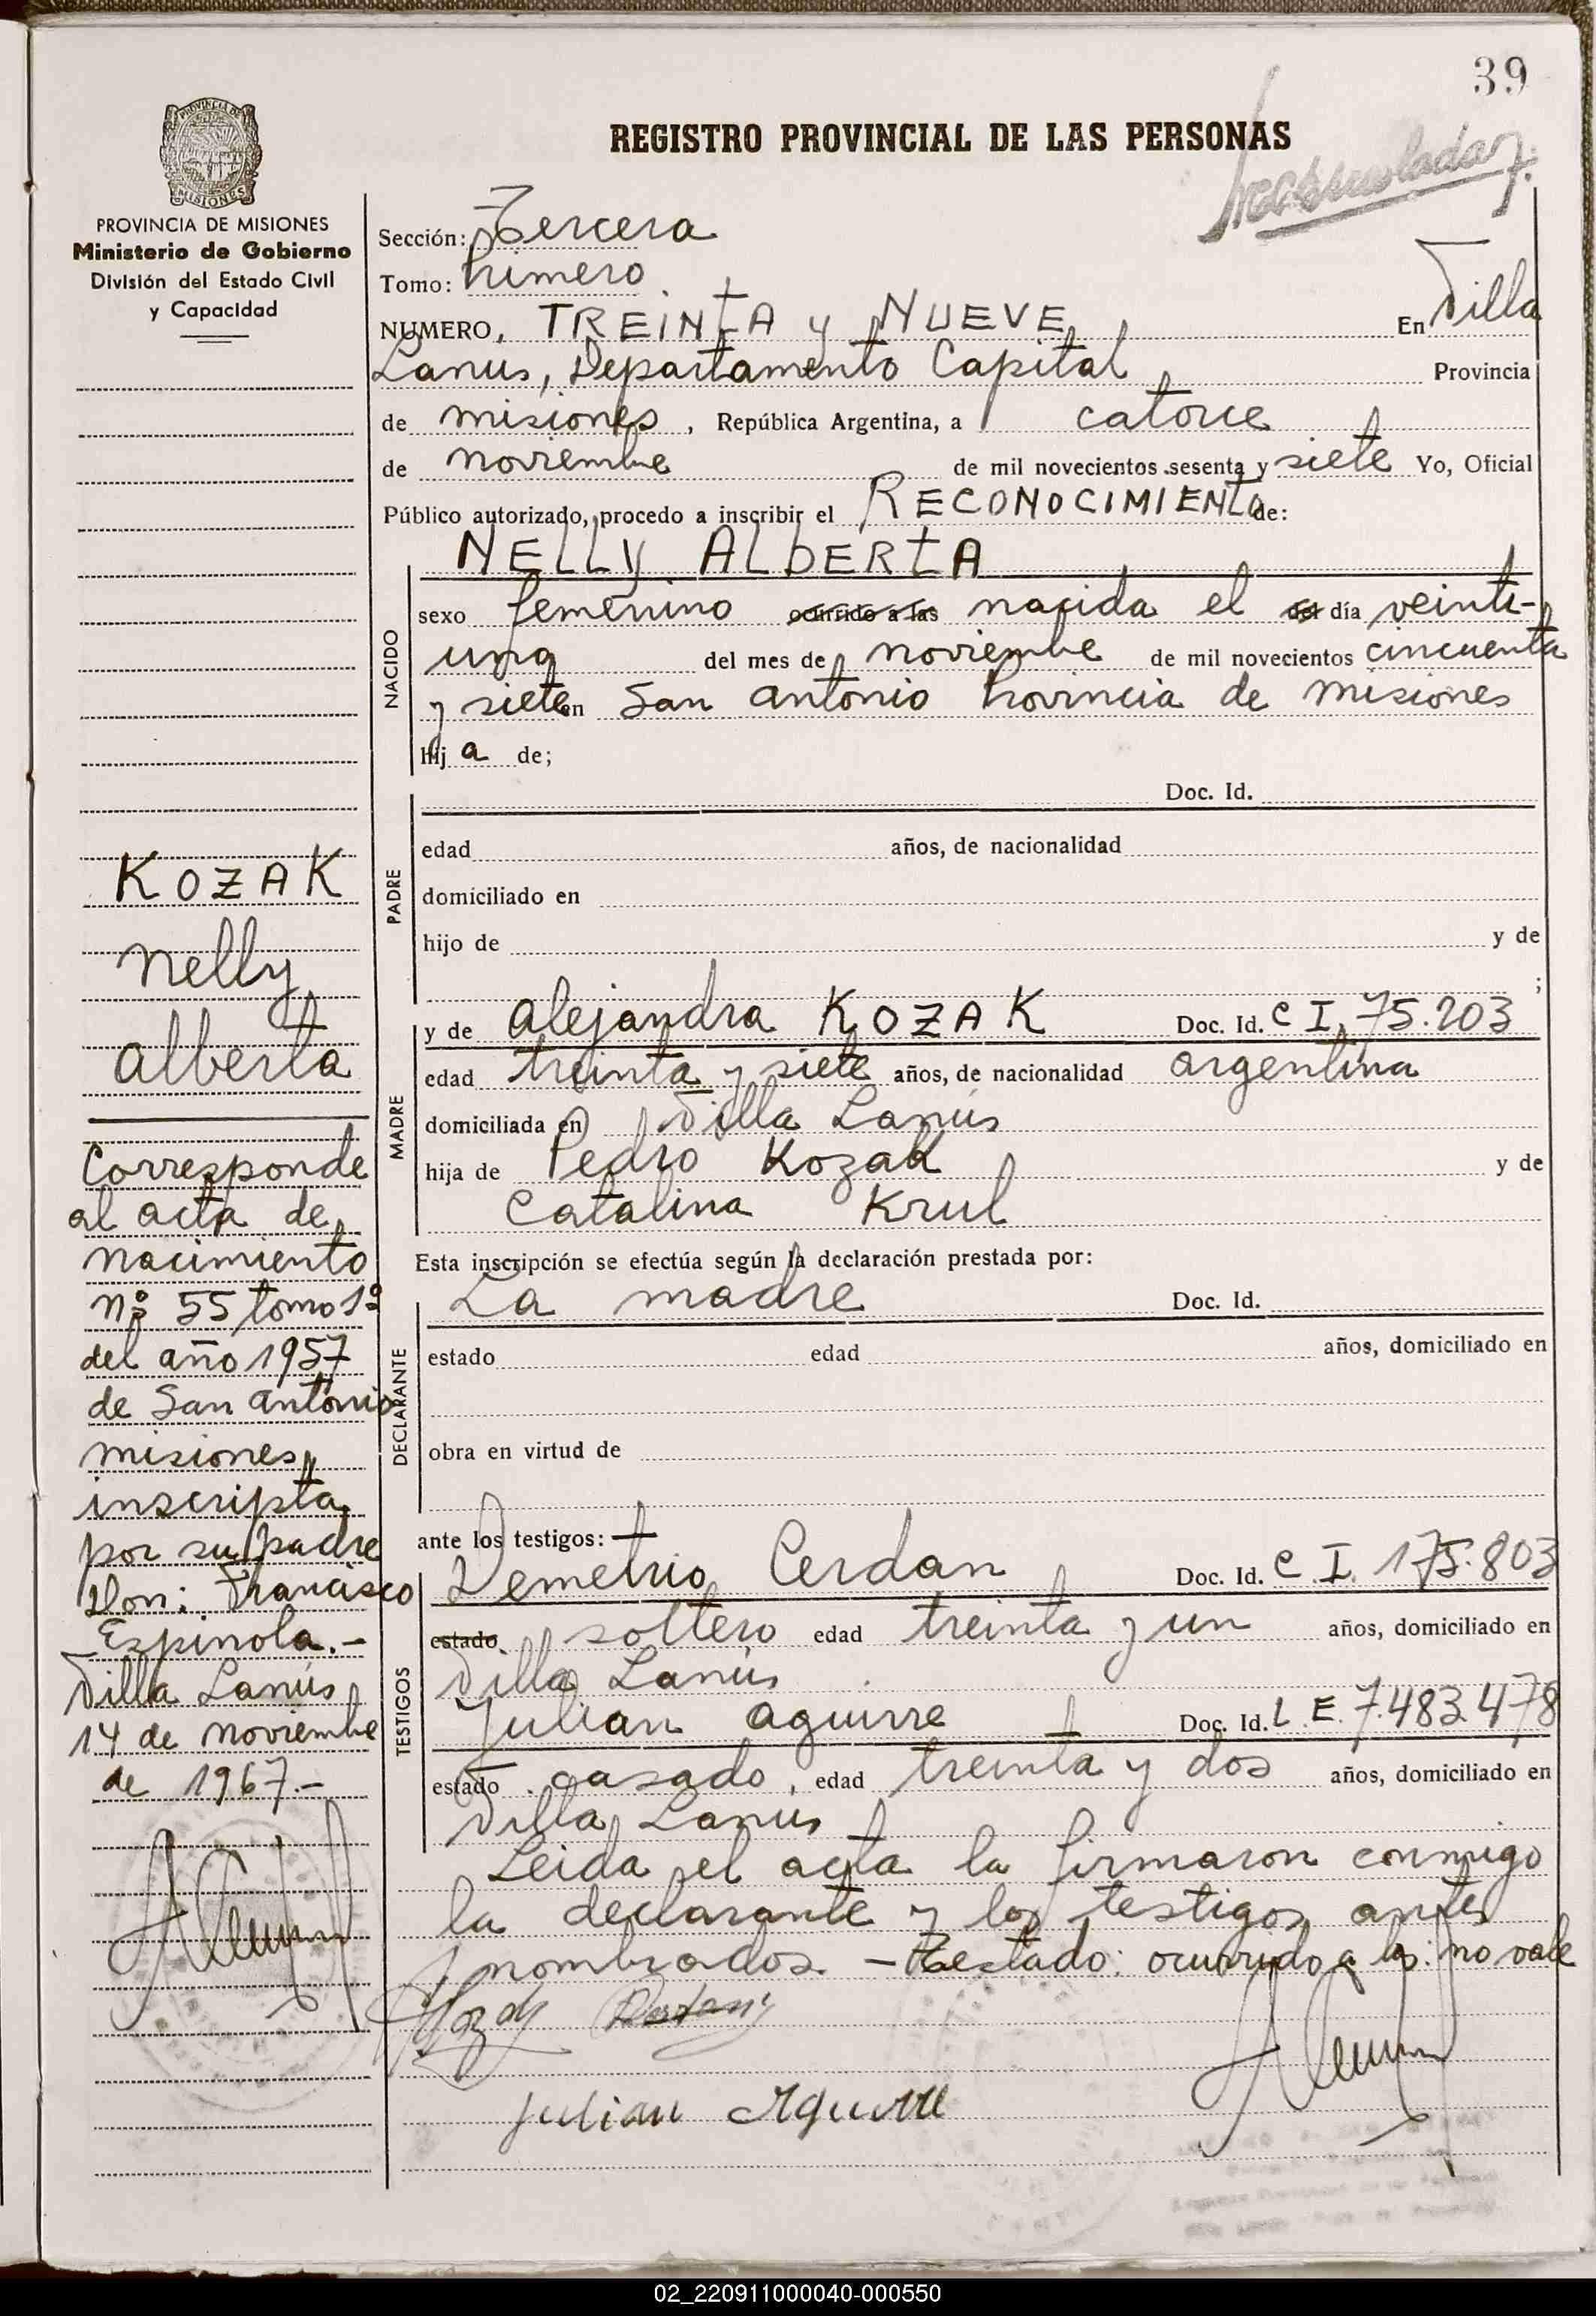 39
REGISTRO PROVINCIAL DE LAS PERSONAS
PROVINCIA DE MISIONES
Ministerio de Gobierno
División del Estado Civil
y Capacidad
KOZAK
Nelly
Alberta
Corresponde
al acta de
nacimiento
Nº 55 tomo 1º
del año 1957
de San Antonio
Misiones,
inscripta
por su padre
Don: Francisco
Espinola.-
Villa Lanús
14 de noviembre
de 1967.-
Sección: Tercera
Tomo: Primero
NUMERO, TREINTA y NUEVE En Villa
Lanus, Departamento Capital Provincia
de Misiones, República Argentina, a catorce
de noviembre de mil novecientos sesenta y siete Yo, Oficial
Público autorizado, procedo a inscribir el RECONOCIMIENTO de:
NELLY ALBERTA
NACIDO
sexo femenino ocurrido a las nacida el del día veinti-
uno del mes de noviembre de mil novecientos cincuenta
y siete en San Antonio Provincia de Misiones
hija de;
PADRE
Doc. Id.
edad años, de nacionalidad
domiciliado en
hijo de y de
;
MADRE
y de Alejandra KOZAK Doc. Id. C I. 75.203
edad treinta y siete años, de nacionalidad argentina
domiciliada en Villa Lanús
hija de Pedro Kozak y de
Catalina Krul
Esta inscripción se efectúa según la declaración prestada por:
DECLARANTE
La madre Doc. Id.
estado edad años, domiciliado en
obra en virtud de
ante los testigos:
TESTIGOS
Demetrio Cerdan Doc. Id. C. I. 175.803
estado soltero edad treinta y un años, domiciliado en
Villa Lanús
Julian Aguirre Doc. Id. L. E. 7.483.478
estado casado, edad treinta y dos años, domiciliado en
Villa Lanús
Leida el acta la firmaron conmigo
la declarante y los testigos antes
nombrados. - Testado: ocurrido a las: no vale
Julian Aguirre
02_220911000040-000550